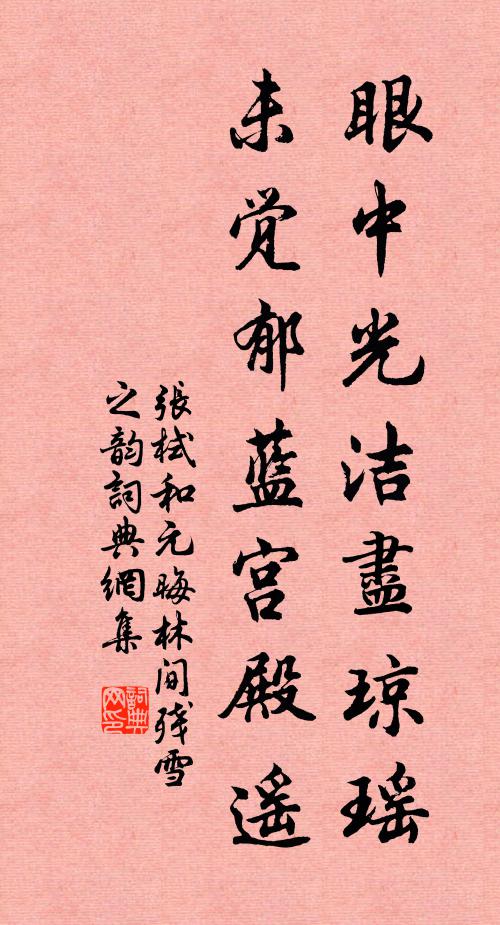 眼中光洁盡琼瑶
未觉郁蓝宫殿遥
張栻和元晦林间残雪
之韵詞典網集
詞典
网印